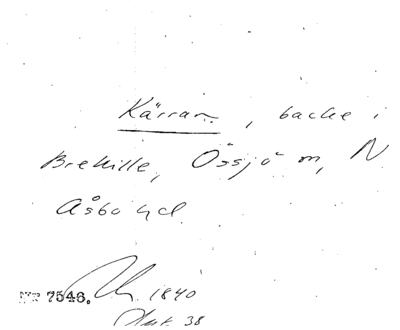 Kärran, backe i
Brehille, Össjö m, N
Åsbo hd
Nr 7546. 1840
38